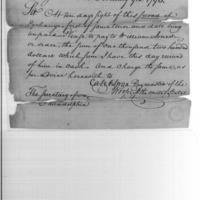 1790.
Sir At ten days sight of this
Exchange first of same tenor and date being
unpaid Please to pay to
or order, the sum of One thousand two hundred
dollars which sum I have this day received
of him in cash. And charge the same, as
per advice herewith to
Caleb Swan Paymaster of the
The Secretary of war Troops of the united States
Philadelphia